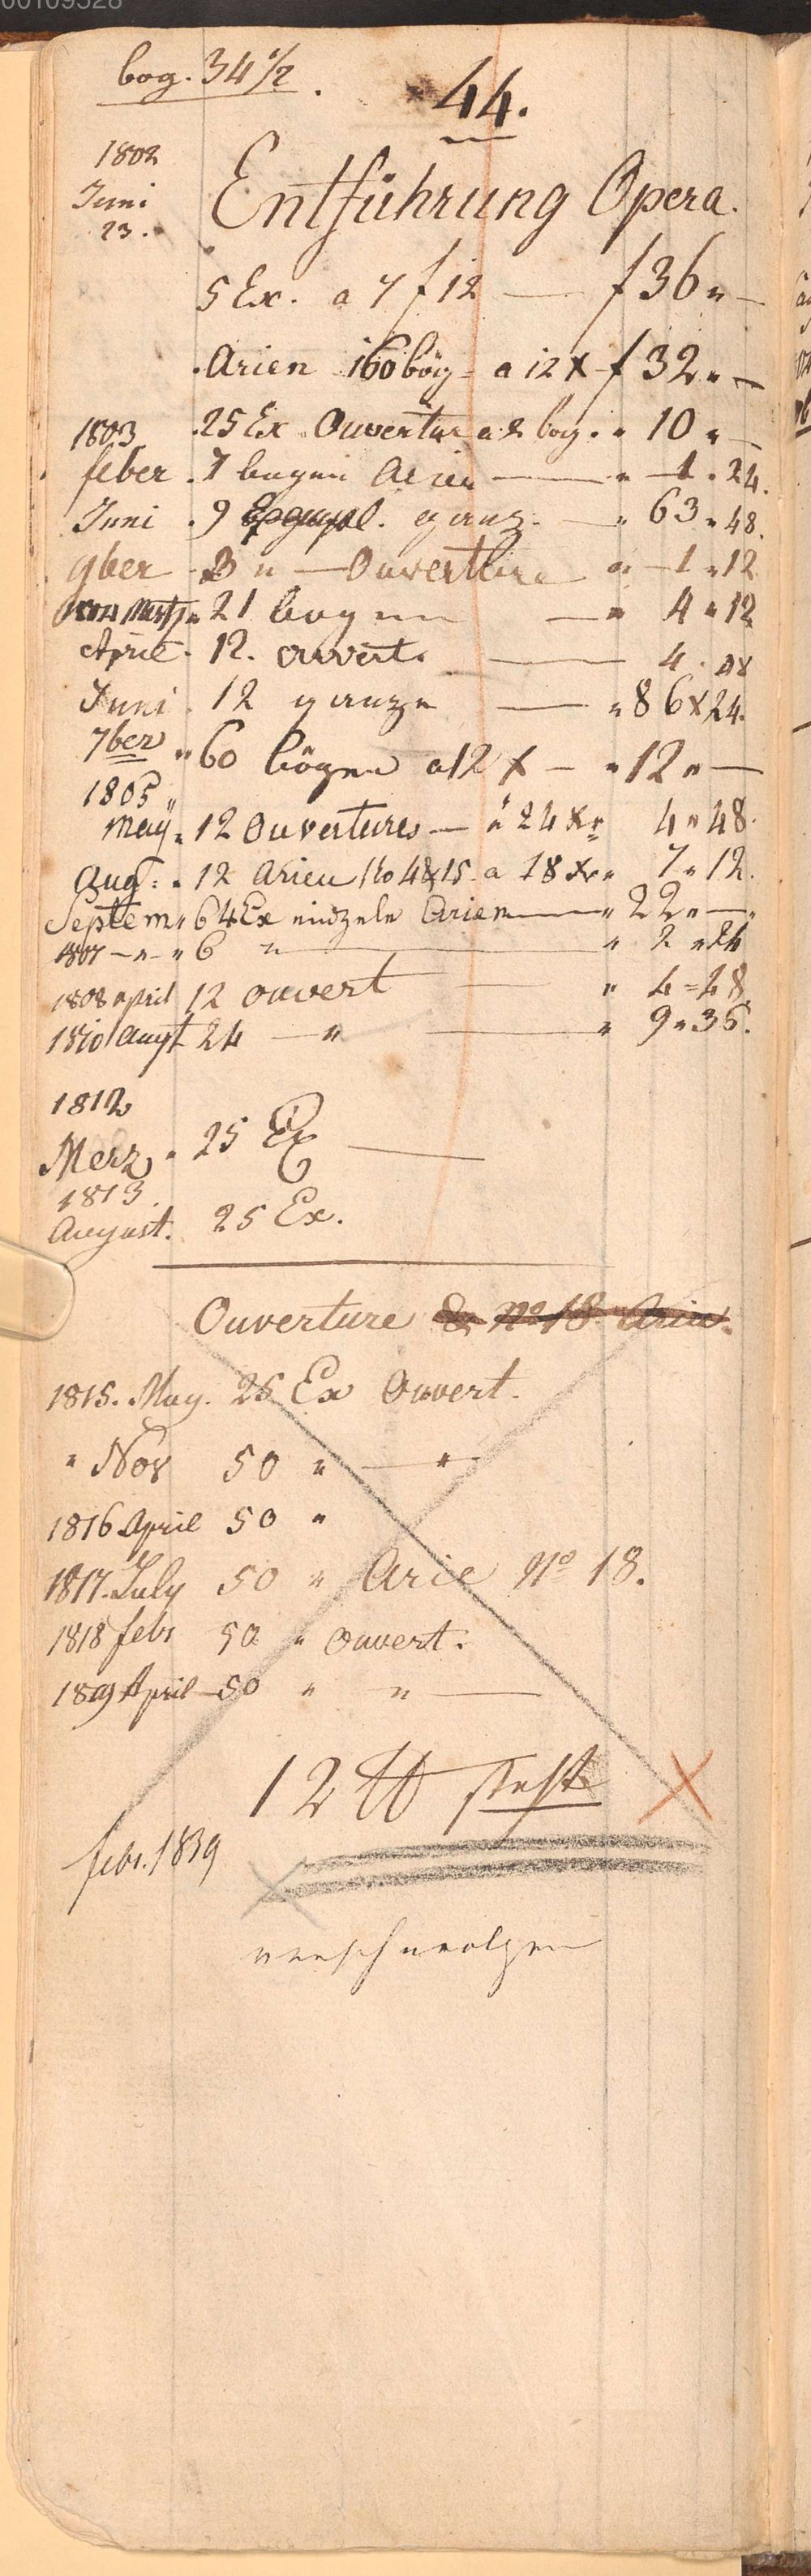 00109328
bog. 34 1/2.
44.
1802
Juni
23.
Entführung Opera.
5 Ex. a 7 f 12 — f 36 " —
Arien 160 bög a 12 X f 32 " —
1803 25 Ex Ouvertur a 2 bog. " 10 " —
feber 7 bogen Arien — " — 1 " 24.
Juni 9 ganz — " 63 " 48.
9ber 3 " — Ouverture " — 1 " 12
1804 21 bogen — " 4 " 12
April 12. ouvert. — 4. 48
Juni 12 ganze — " 86 X 24.
7ber " 60 bögen a 12 X — " 12 " —
1805 "
May " 12 Ouvertures — a 24 Xr " 4 " 48.
Aug: " 12 Arien No 4 & 15. a 18 Xr " 7 " 12.
Septem " 64 Ex einzele Arien — " 22 " — "
1807 — " — " 6 " — " 2 " 24
1808 april 12 ouvert — " 4 = 48
1810 Augt 24 — " — " 9 " 36.
1812
Merz " 25 Ex —
1813.
August. 25 Ex.
Ouverture & No 18 Arie.
1815. May. 25 Ex Ouvert.
" Nov 50 " — "
1816 April 50 "
1817. July 50 " Arie No 18.
1818 febr 50 " Ouvert.
1819 April — 50 " " —
12 steht
febr. 1839